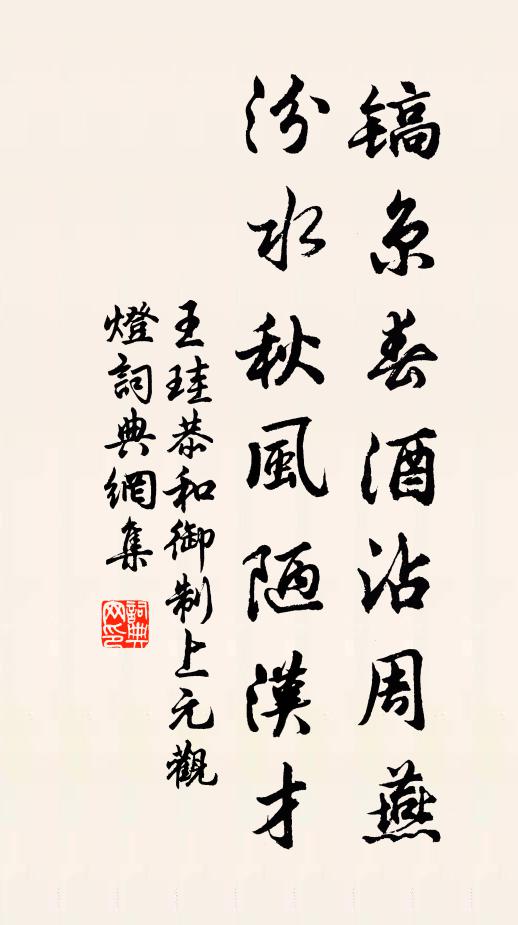 镐京春酒沾周燕
汾水秋風陋漢才
王珪恭和御制上元觀
燈詞典網集
詞典網印